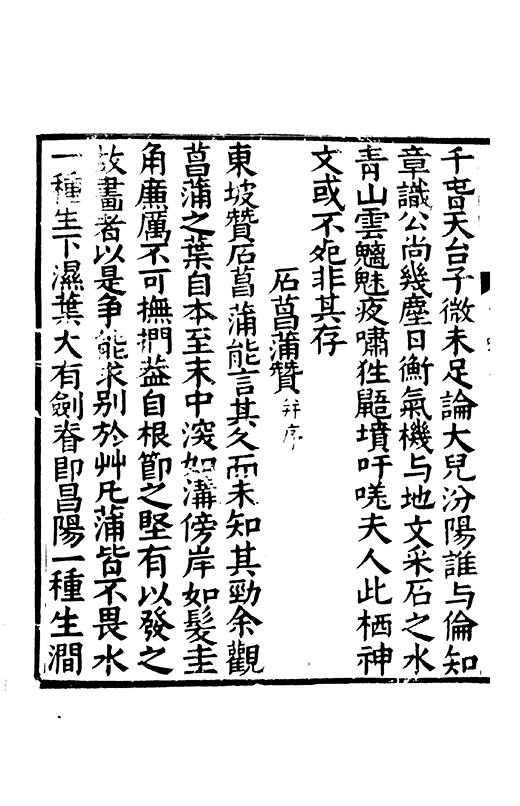 千眚天台子微未足論大兒汾陽誰与倫知
章識公尚幾塵日衡氣機与地文采石之水
青山雲魑魅夜嘯狌鼯墳吁嗟夫人此栖神
文或不死非其存
石菖蒲贊并序
東坡贊石菖蒲能言其久而未知其勁余觀
菖蒲之葉自本至末中深如溝傍岸如髮圭
角廉厲不可撫捫葢自根節之堅有以發之
故畵者以是争能求别於艸凡蒲皆不畏水
一種生下濕葉大有劍脊卽昌陽一種生澗